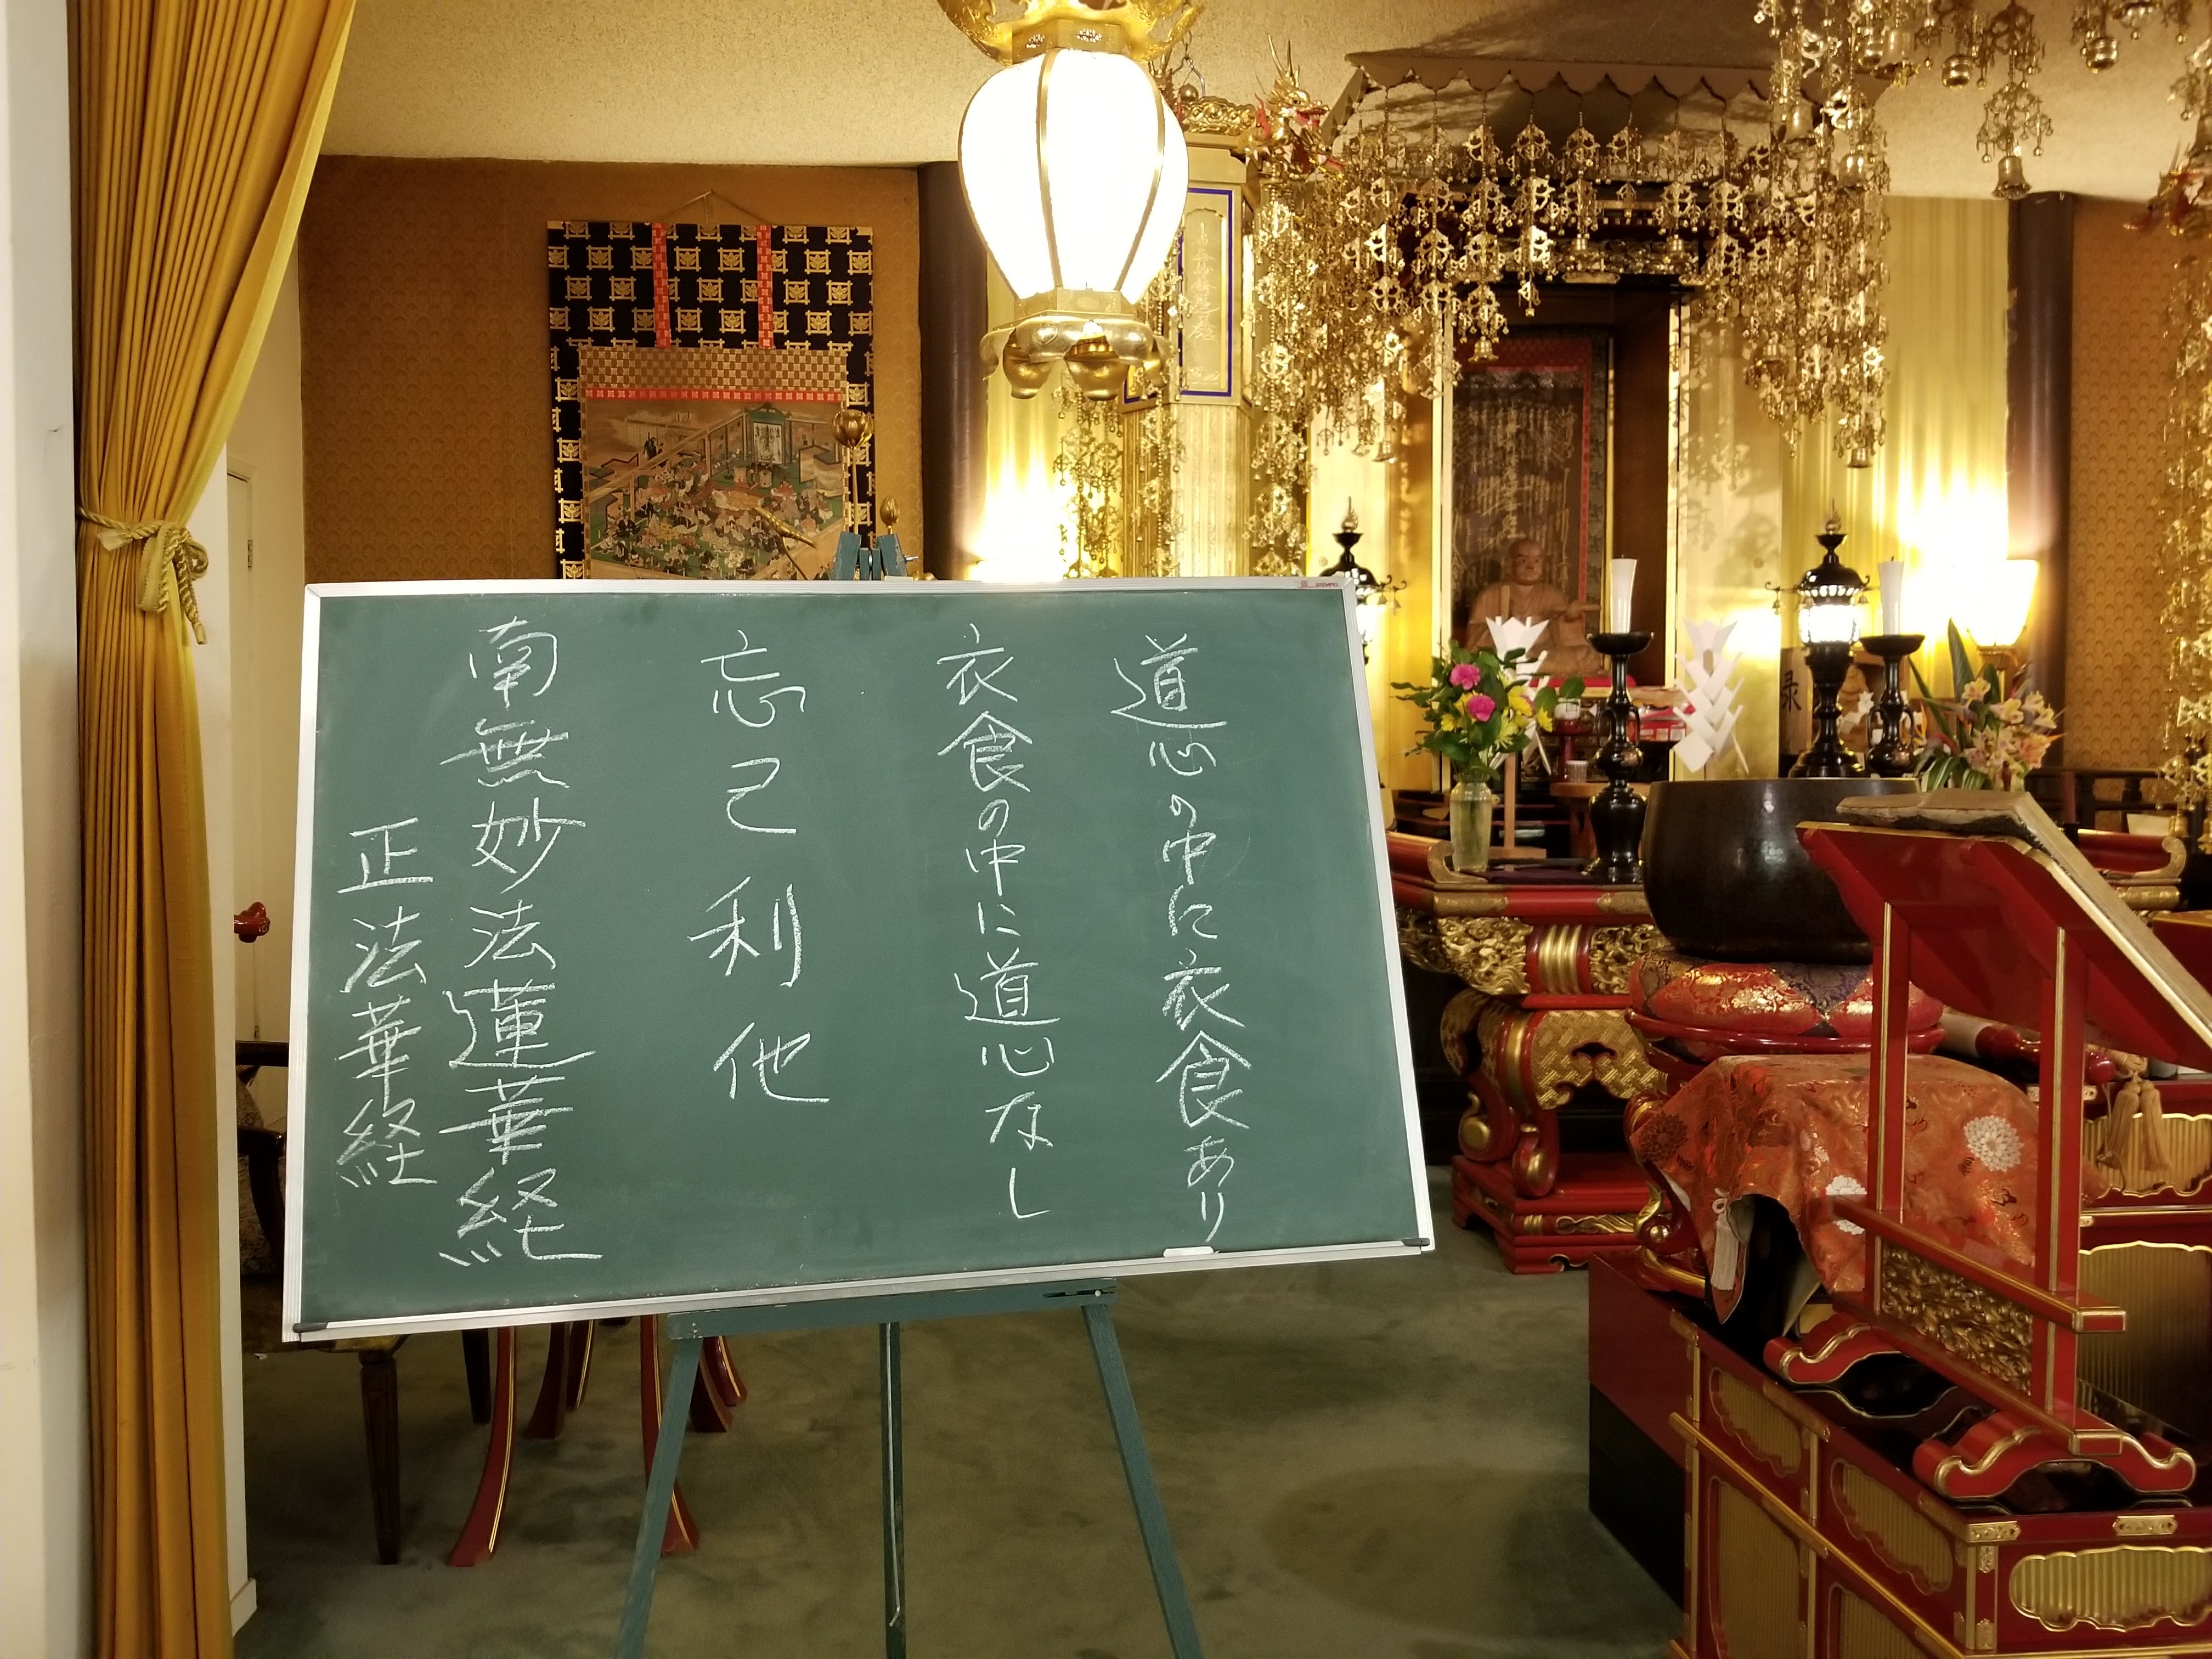 道心の中に衣食あり
衣食の中に道心なし
忘己利他
南無妙法蓮華経
正法華経